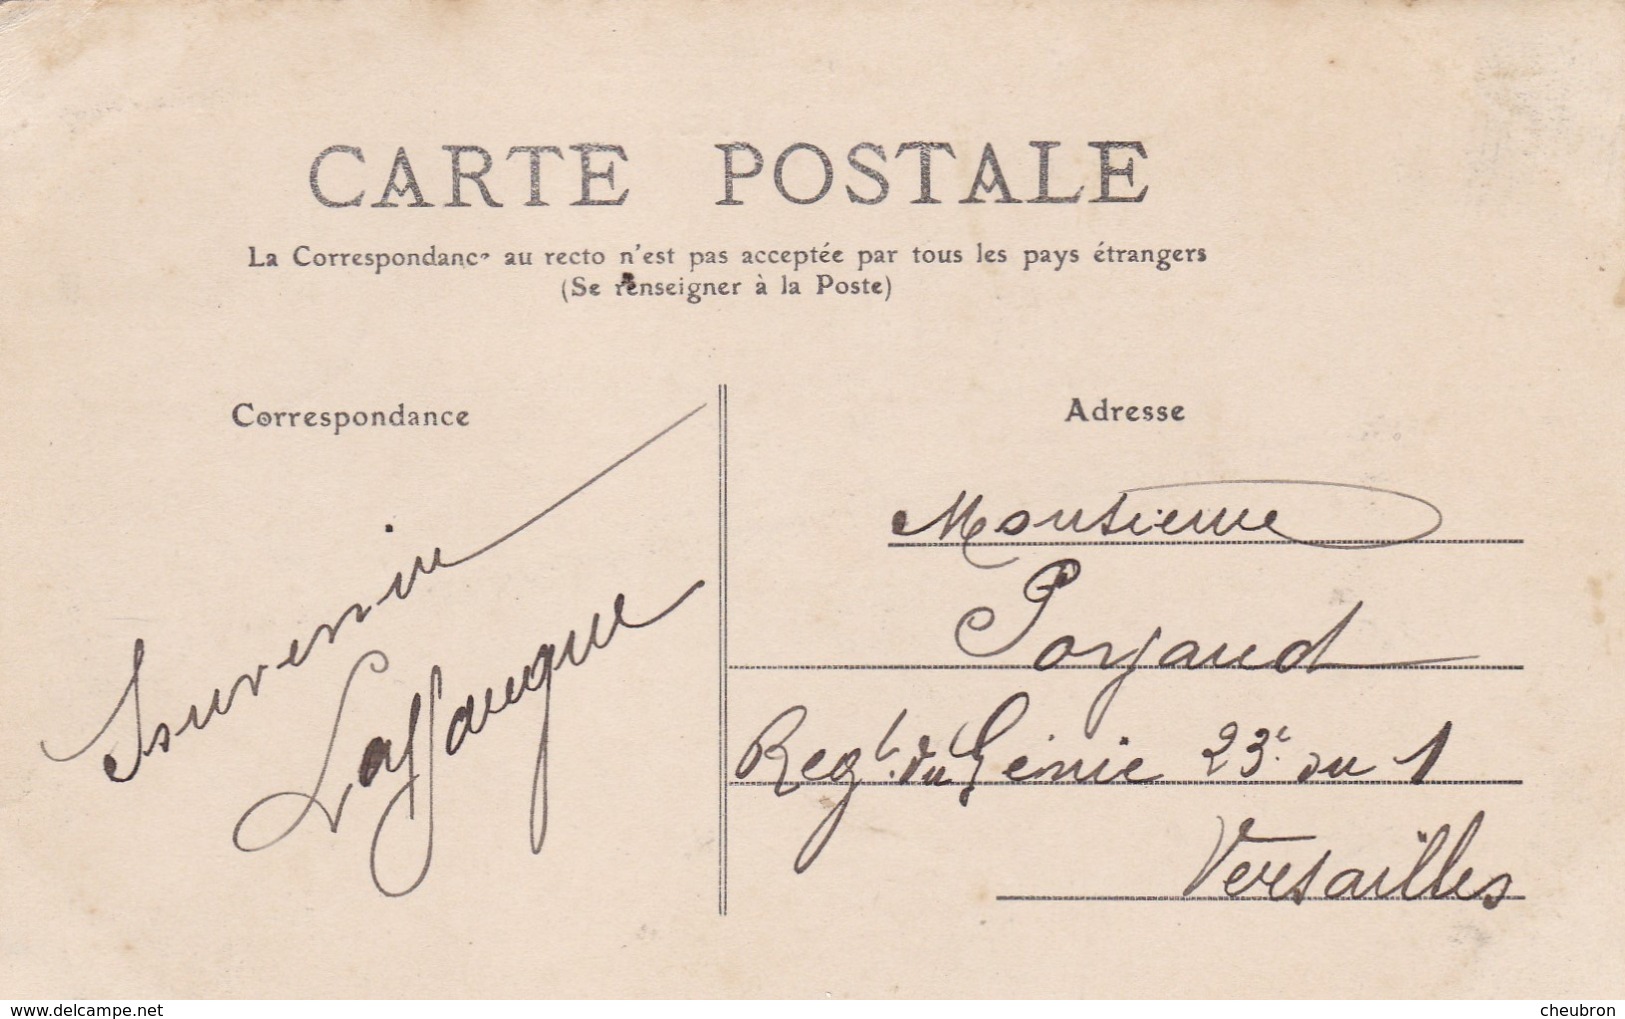 CARTE POSTALE
La Correspondance au recto n'est pas acceptée par tous les pays étrangers
(Se renseigner à la Poste)
Correspondance
Souvenir
Laffargue
Adresse
Monsieur
Poyaud
Reg^t. du Génie 23^e ou 1
Versailles
www.delcampe.net
cheubron